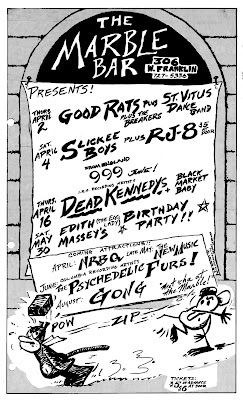 THE
MARBLE
BAR
306
N. FRANKLIN
727-5336
PRESENTS!
THURS. APRIL 2 GOOD RATS PLUS ST. VITUS DANCE BAND
PLUS THE BREAKERS
SAT. APRIL 4 SLICKEE BOYS PLUS RJ-8 $5 DOOR
FROM ENGLAND
999 JUNE!
THURS. APRIL 16 DEAD KENNEDYS + BLACK MARKET BABY
SAT. MAY 30 EDITH (THE EGG LADY) MASSEY'S BIRTHDAY PARTY!!
COMING ATTRACTIONS!!
APRIL: NRBQ LATE MAY: THE NEW MUSIC
COLUMBIA RECORDING ARTISTS
JUNE: THE PSYCHEDELIC FURS!
AUGUST: GONG
POW
ZIP
TICKETS: